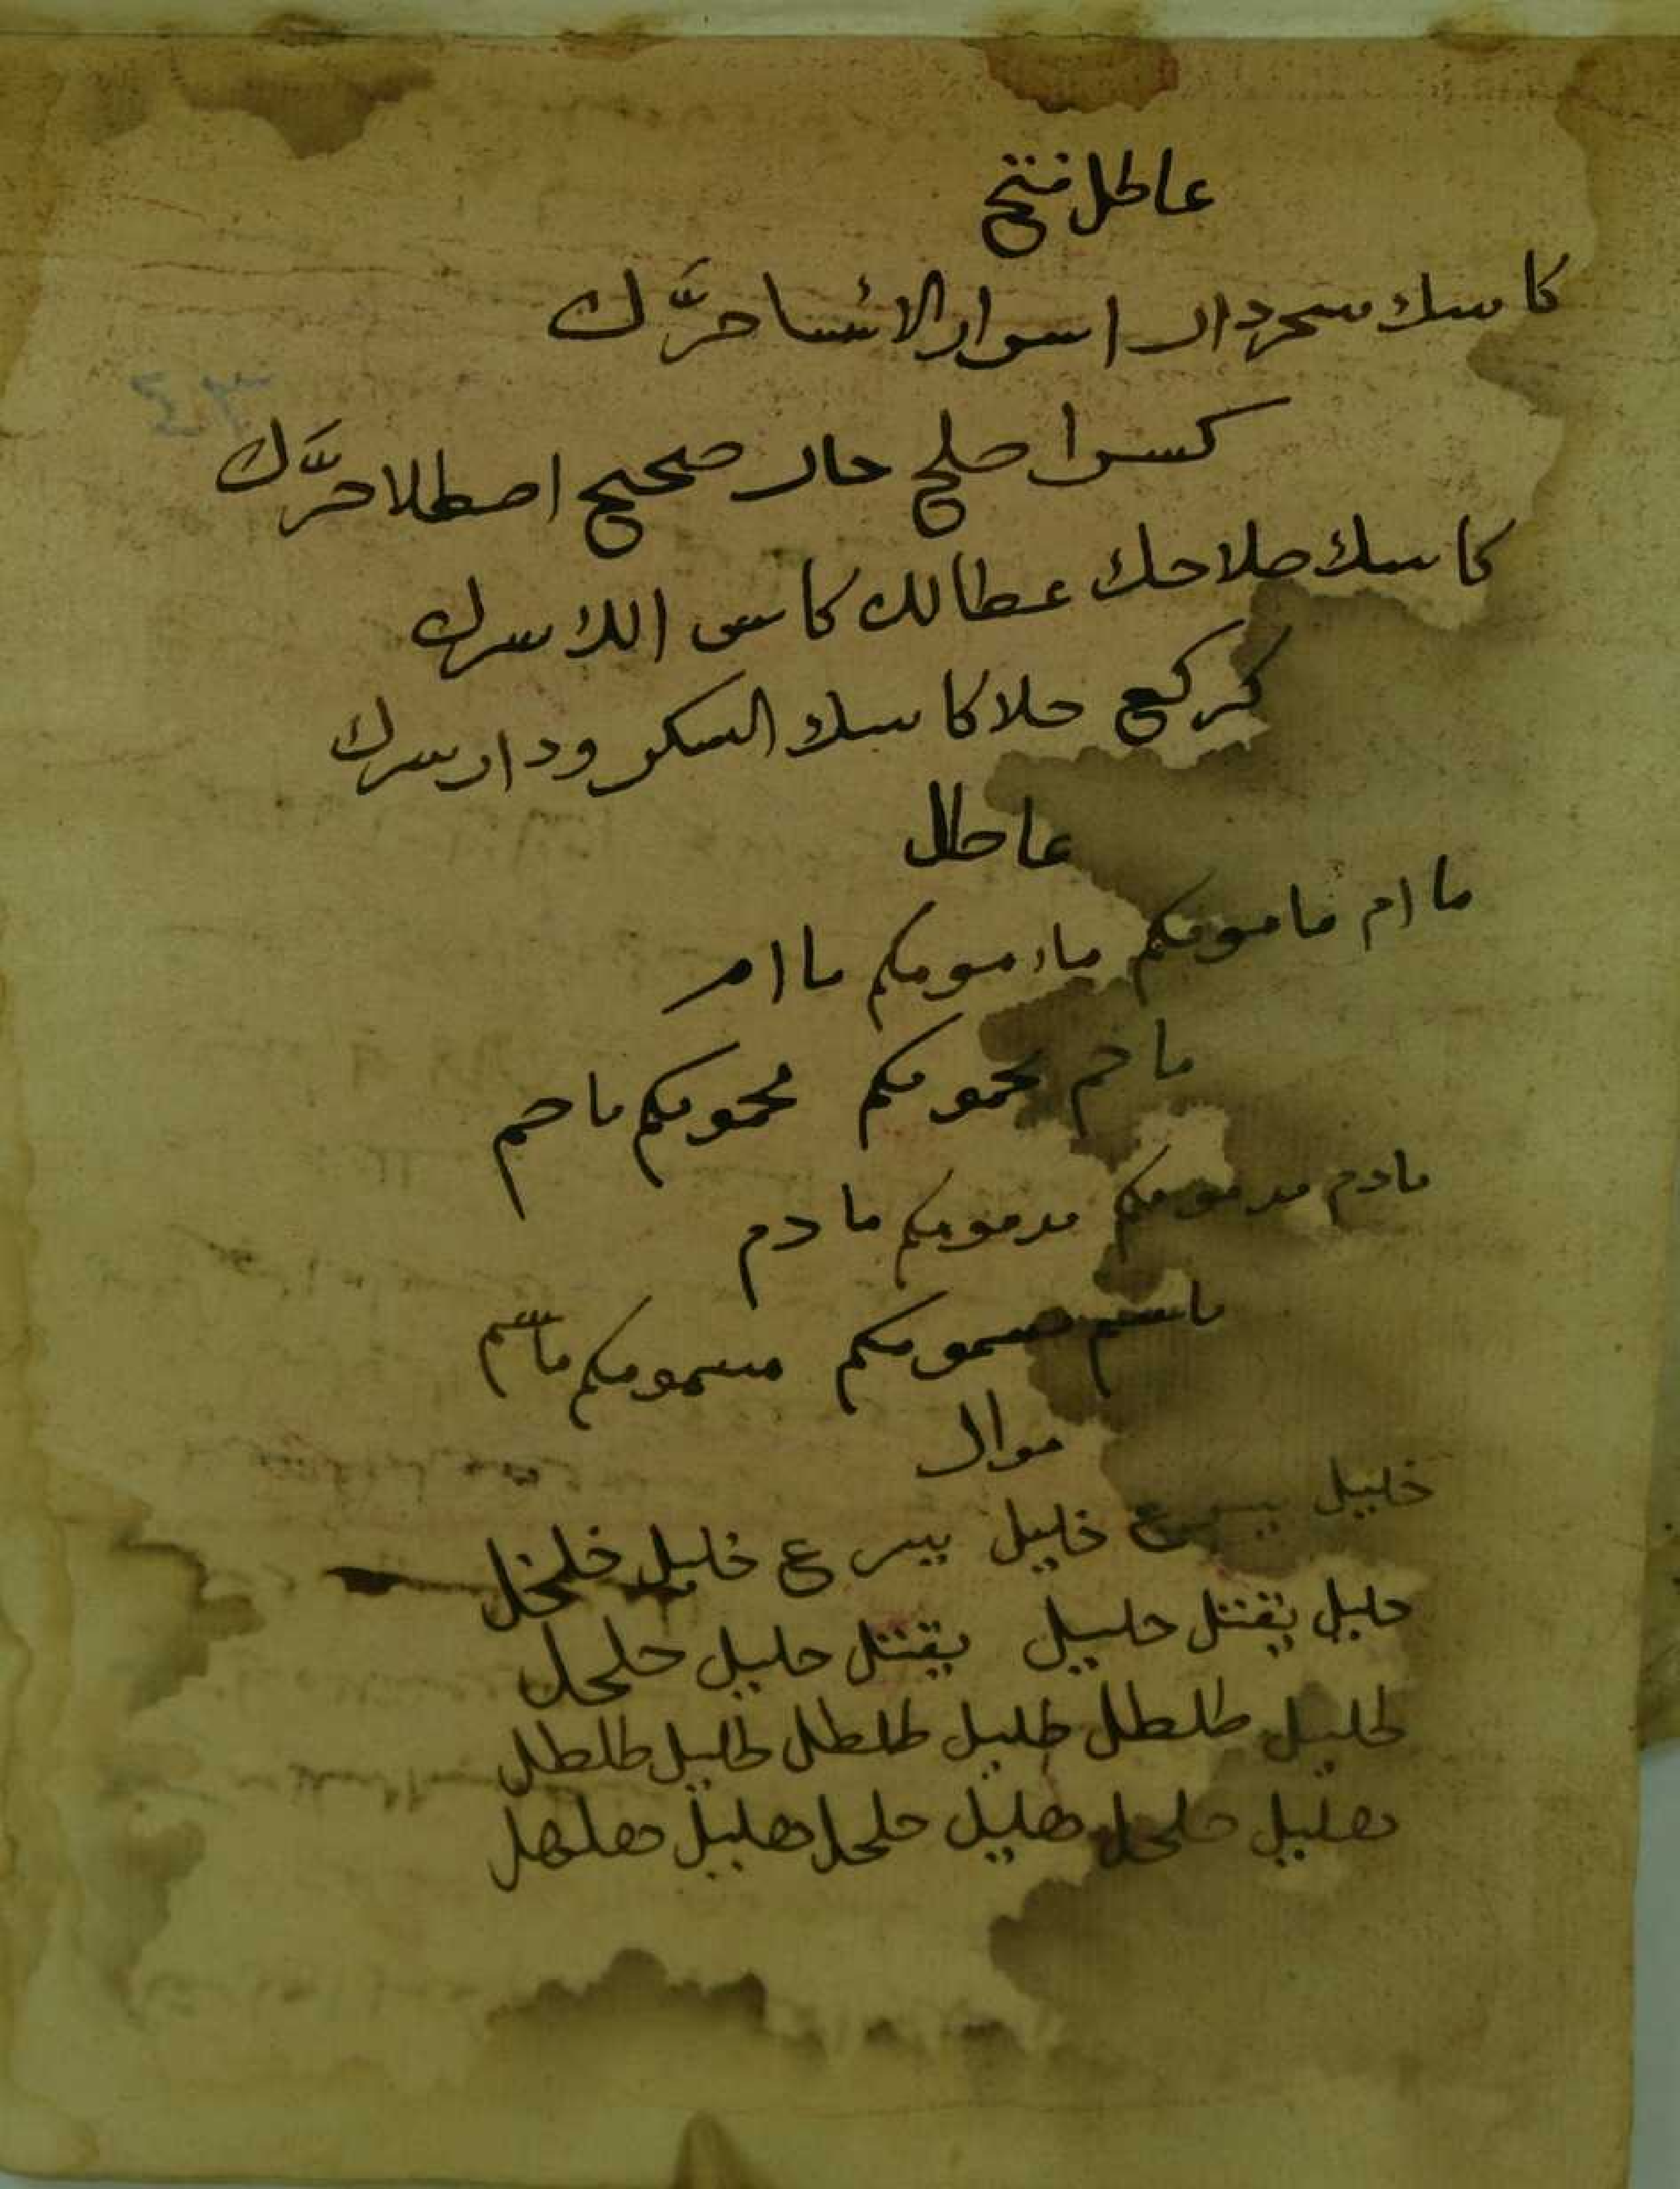 عاطل فتح
كاسك سحر دار اسوار الائسا حرَّك
كسرا صلح حار صحيح اصطلاحرَّك
كاسك صلاحك عطالك كاس اللا سرك
كركع حلا كاسك السكر ودار سرك
عاطل
ما ام مامومكم مامومكم ما ام
ما حم محمومكم محمومكم ما حم
ما دم مدمومكم مدمومكم ما دم
ما سم مسمومكم مسمومكم ما سم
موال
خليل يسرع خليل يسرع خليل خلخل
حليل يقتل حليل يقتل حليل حلحل
طليل طلطل طليل طلطل طليل طلطل
هليل حلحل هليل حلحل هليل هلهل